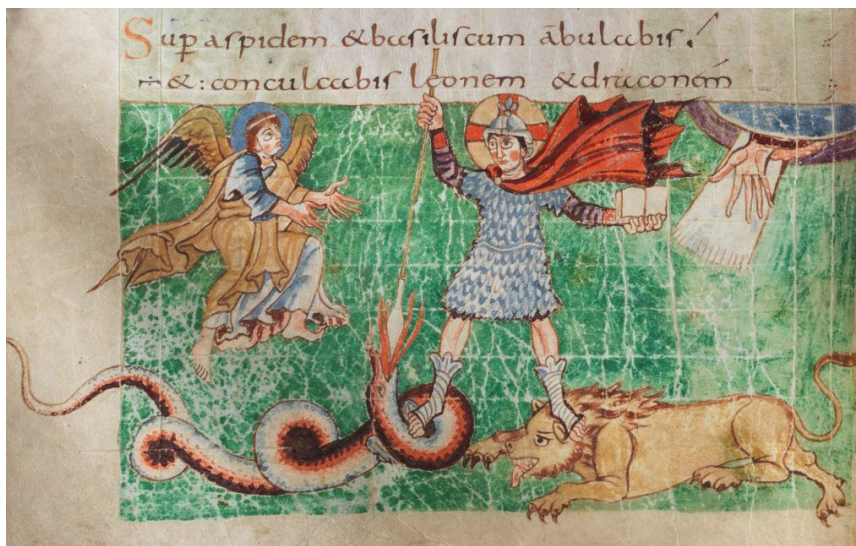 Sup aspidem &basiliscum ābulabis.
÷ &: conculcabis leonem &draconem